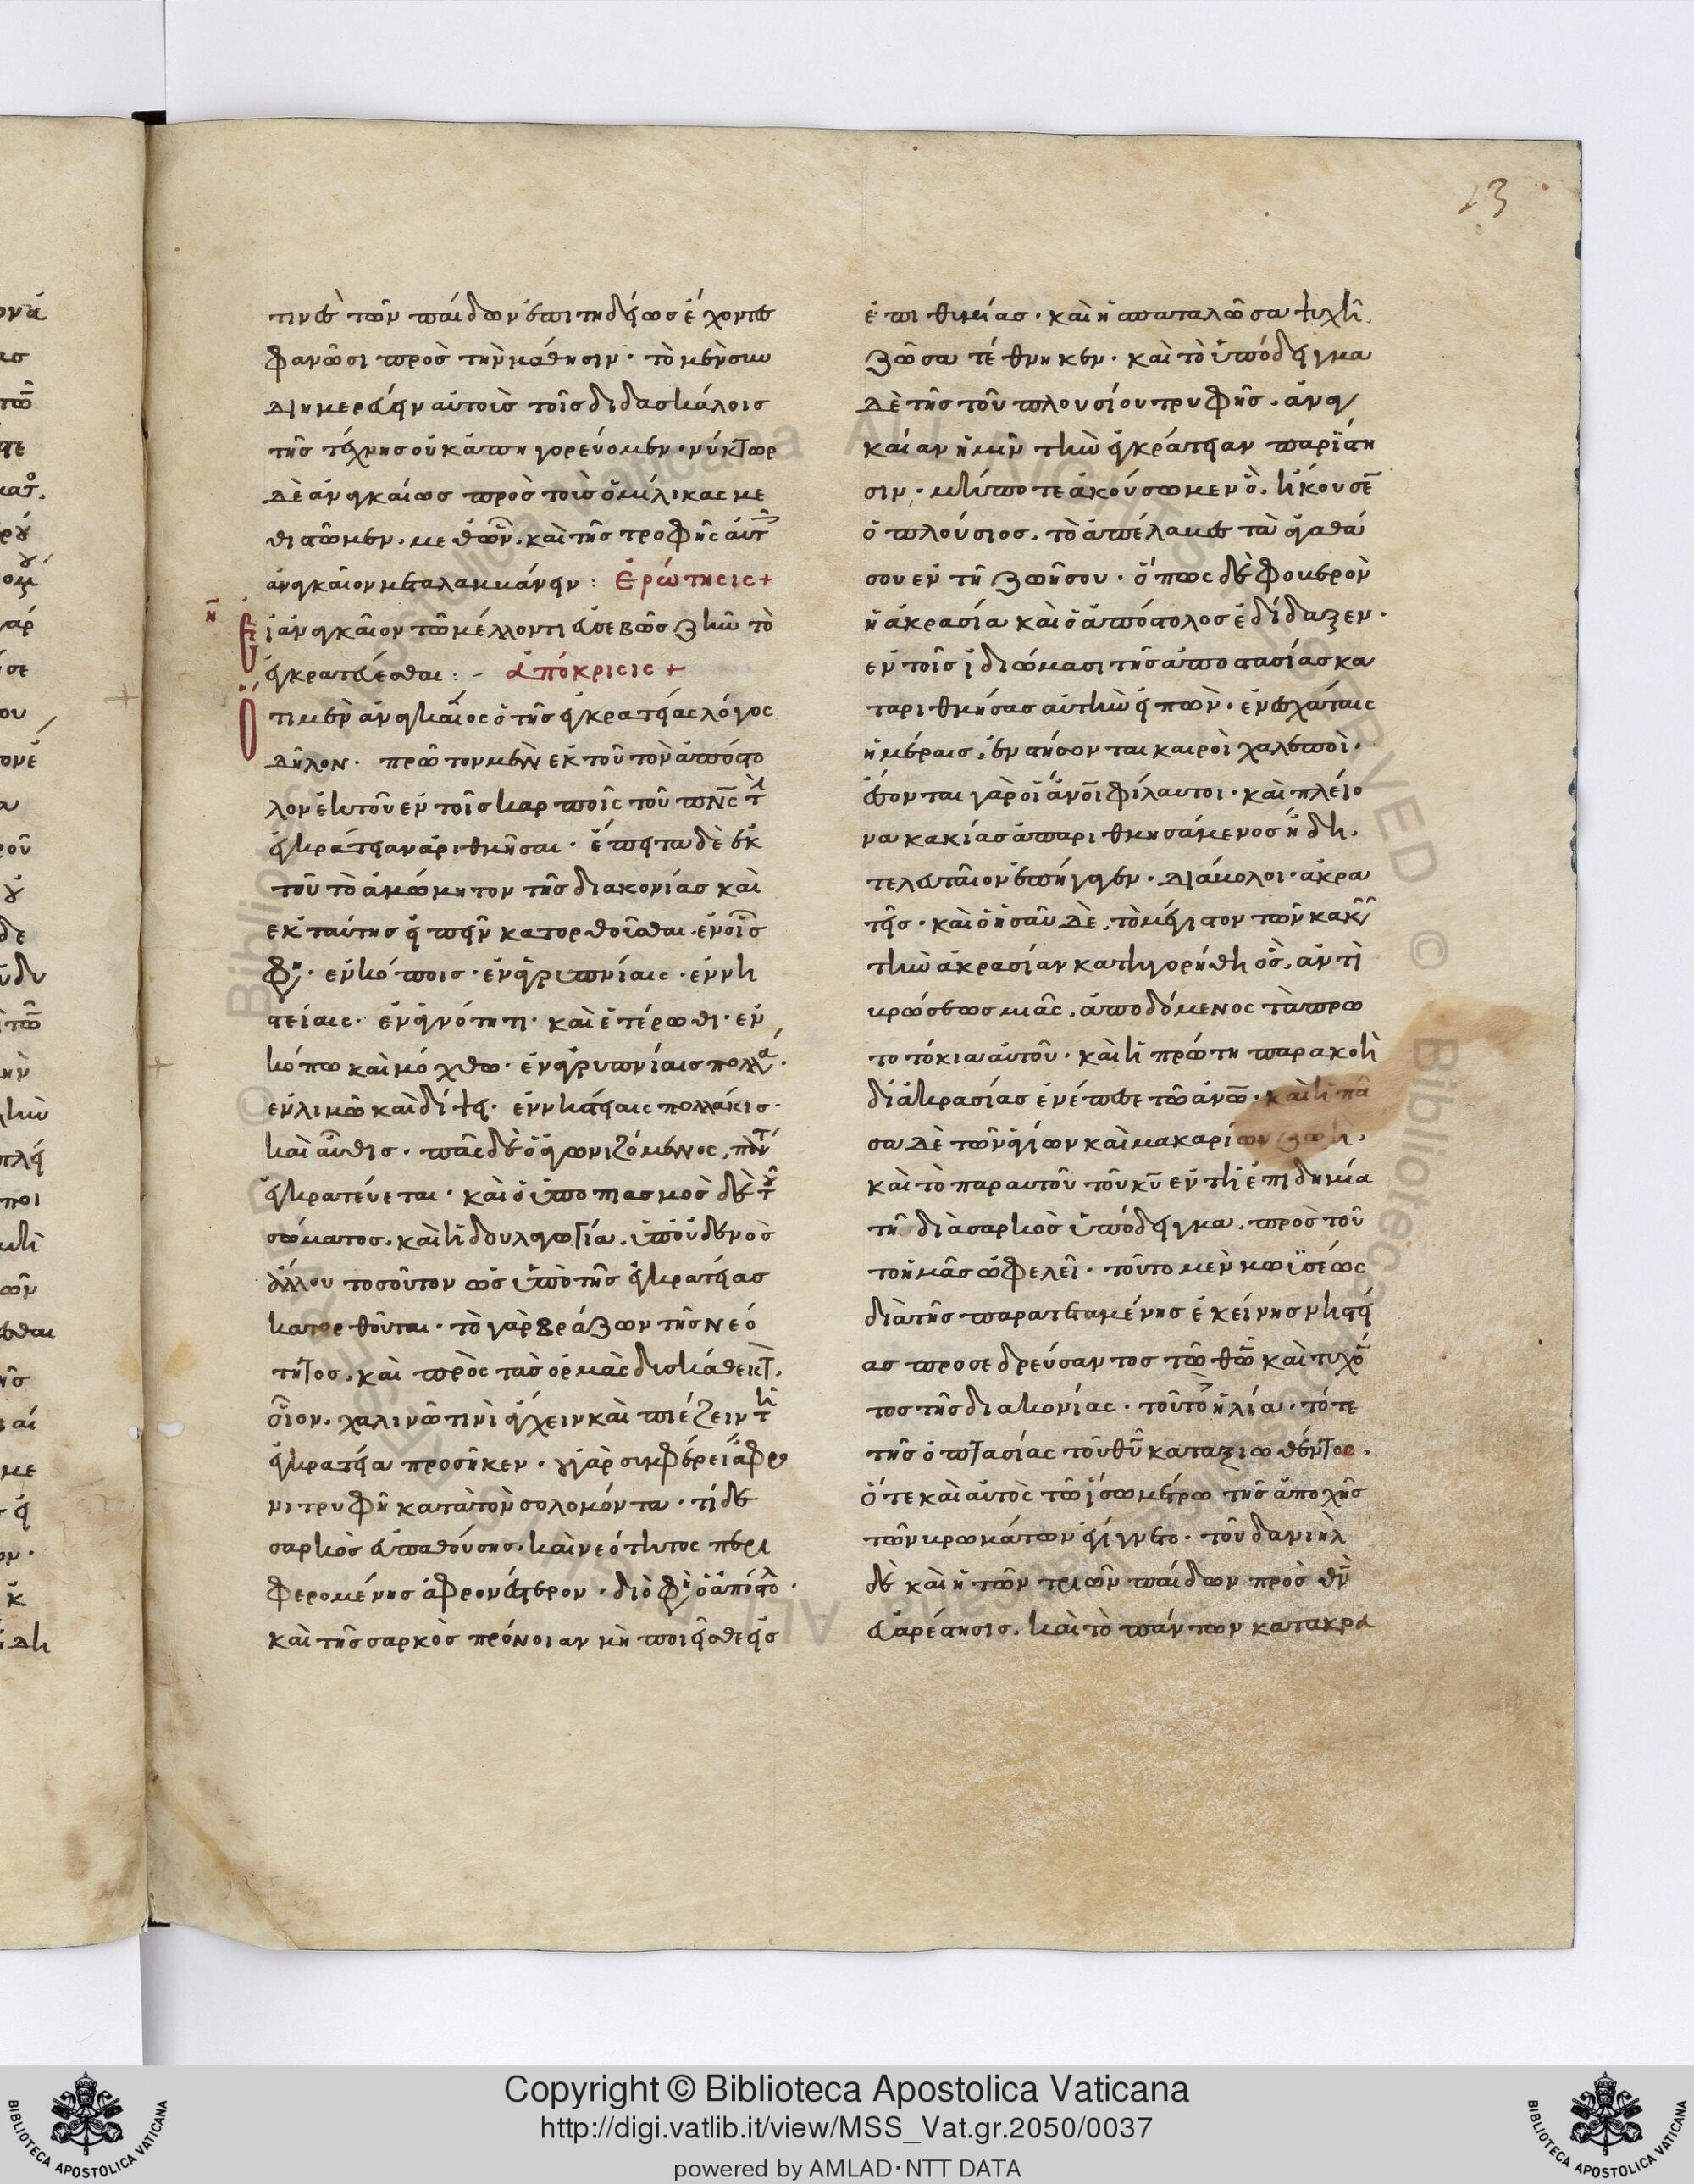 13
τινες τῶν παίδων ἐπιτηδείως ἔχοντες
φανῶσι πρὸς τὴν μάθησιν · τὸ μὲν συν
διημερεύειν αὐτοὺς τοῖς διδασκάλοις
τῆς τέχνης οὐκ ἀπηγορεύομεν · νύκτωρ
δὲ ἀναγκαίως πρὸς τοὺς ὁμίλικας με
θιστῶμεν. μεθ ὧν. καὶ τῆς τροφῆς αὐτ
ἀναγκαῖον μεταλαμβάνειν : Ἐρώτησις +
η
Εἰ ἀναγκαῖον τῶ μέλλοντι εὐσεβῶς ζῆν τὸ
ἐγκρατεύεσθαι : - ἀπόκρισις +
Ὅτι μὲν ἀναγκαῖος ὁ τῆς ἐγκρατείας λόγος
δῆλον. πρῶτον μὲν ἐκ τοῦ τὸν ἀπόστο
λον ἐκ τοῦ ἐν τοῖς καρποῖς τοῦ πνς τ
ἐγκράτειαν ἀριθμῆσαι · ἔπειτα δὲ ἐκ
τοῦ τὸ ἀμώμητον τῆς διακονίας καὶ
ἐκ ταύτης εἰπεῖν κατορθοῦσθαι. ἐν οἷς
φη · ἐν κόποις · ἐν ἀγρυπνίαις · ἐν νη
στείαις · ἐν ἁγνότητι · καὶ ἑτέρωθι · ἐν
κόπω καὶ μόχθω · ἐν ἀγρυπνίαις πολλα ·
ἐν λιμῶ καὶ δίψει · ἐν νηστείαις πολλάκις ·
καὶ αὖθις · πᾶς δὲ ὁ ἀγωνιζόμενος, πάντ
ἐγκρατεύεται · καὶ ὁ ὑποπιασμὸς δὲ τ
σώματος. καὶ ἡ δουλαγωγία. ὑπ οὐδενὸς
ἄλλου τοσοῦτον ὡς ὑπὸ τῆς ἐγκρατείας
κατορθοῦται · τὸ γὰρ βράζων τῆς νεό
τητος. καὶ πρὸς τὰς ὁρμὰς δυσκάθεκτ.
οἷον. χαλινῶ τινὶ ἄγχειν καὶ πιέζειν τ
ἐγκράτεια προσῆκεν · οὐ γὰρ συμφέρει ἄφρο
νι τρυφὴ κατὰ τὸν σολομόντα · τί δὲ
σαρκὸς εὐπαθούσης. καὶ νεότητος περι
φερομένης ἀφρονέστερον · διὸ φη ὁ ἀπόστολ.
καὶ τῆς σαρκὸς πρόνοιαν μὴ ποιεῖσθε εἰς
ἐπιθυμίας · καὶ ἡ σπαταλῶσα ψυχὴ.
ζῶσα τέθνηκεν · καὶ τὸ ὑπόδειγμα
δὲ τῆς τοῦ πλουσίου τρυφῆς. ἀναγ
καίαν ἡμῖν τὴν ἐγκράτειαν παριστη
σιν · μήποτε ἀκούσωμεν ὃ. ἤκουσεν
ὁ πλούσιος. τὸ ἀπέλαβες τὰ ἀγαθά
σου ἐν τῆ ζωῆ σου · ὅπως δὲ φοβερὸν
ἡ ἀκρασία καὶ ὁ ἀπόστολος ἐδίδαξεν ·
ἐν τοῖς ἰδιώμασι τῆς ἀποστασίας κα
ταριθμήσας αὐτὴν εἰπών · ἐν ἐσχάταις
ἡμέραις. ἐνστήσονται καιροὶ χαλεποὶ ·
ἔσονται γὰρ οἱ ἄνοι φίλαυτοι · καὶ πλείο
να κακίας ἀπαριθμησάμενος ἤδη.
τελευταῖον ἐπήγαγεν · διάβολοι · ἀκρα
τεῖς · καὶ ὁ ἡσαῦ δὲ. τὸ μέγιστον τῶν κακ
τὴν ἀκρασίαν κατηγορήθη ὃς. ἀντὶ
βρώσεως μιᾶς. ἀποδόμενος τὰ πρω
τοτόκια αὐτοῦ · καὶ ἡ πρώτη παρακοὴ
δι ἀκρασίας ἐνέπεσε τῶ ἀνω · καὶ ἡ πᾶ
σα δὲ τῶν ἁγίων καὶ μακαρίων ζωὴ.
καὶ τὸ παρ αυτοῦ τοῦ κυ ἐν τῆ ἐπιδημία
τῆ διὰ σαρκὸς ὑπόδειγμα. πρὸς τοῦ
το ἡμᾶς ὠφελεῖ · τοῦτο μὲν μωϋσέως
διὰ τῆς παρατεταμένης ἐκείνης νηστεί
ας προσεδρεύσαντος τῶ θω καὶ τυχο
τος τῆς διακονίας · τοῦτο ἡλία · τότε
τῆς ὀπτασίας τοῦ θυ καταξιωθέντος.
ὅτε καὶ αὐτὸς τῶ ἴσω μέτρω τῆς ἀποχῆς
τῶν βρωμάτων ἐγίγνετο · τοῦ δανιηλ
δὲ καὶ ἡ τῶν τριῶν παίδων πρὸς θν
εὐαρέστησις. καὶ τὸ πάντων κατακρα
Copyright © Biblioteca Apostolica Vaticana
http://digi.vatlib.it/view/MSS_Vat.gr.2050/0037
powered by AMLAD·NTT DATA